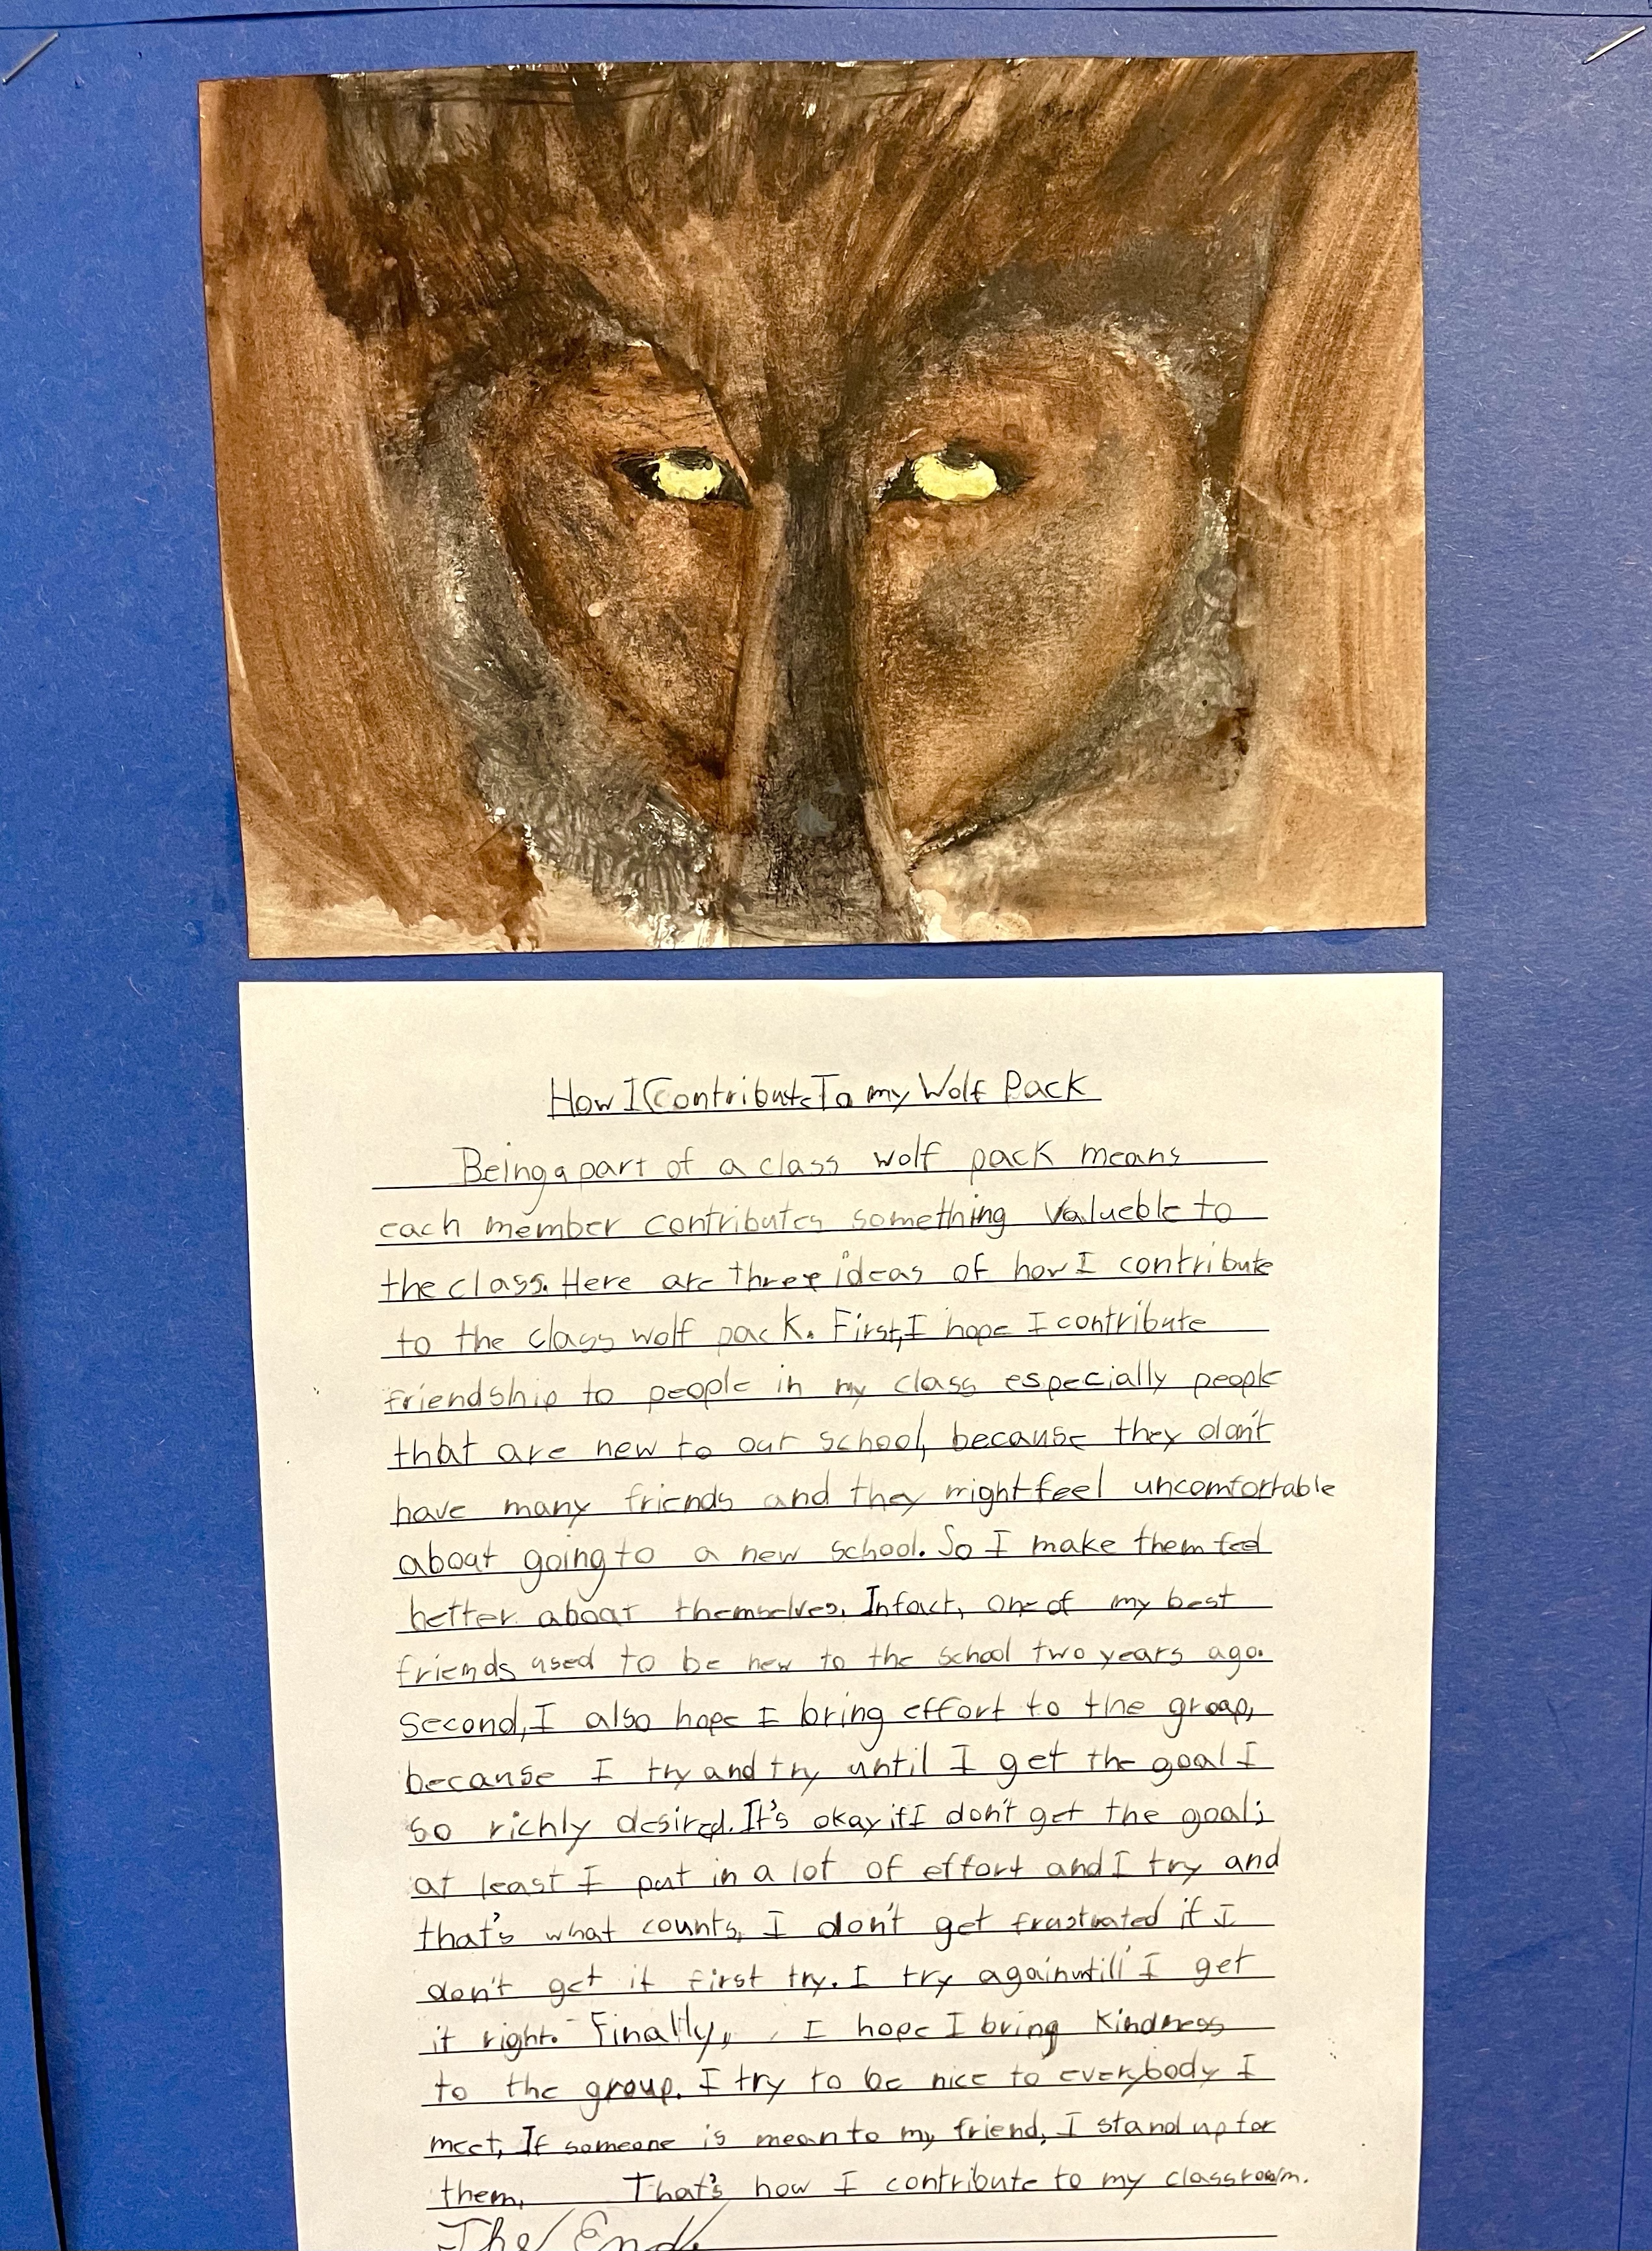 How I Contribute To my Wolf Pack
Being a part of a class wolf pack means
each member contributes something valueble to
the class. Here are three ideas of how I contribute
to the class wolf pack. First, I hope I contribute
friendship to people in my class especially people
that are new to our school, because they don't
have many friends and they might feel uncomfortable
about going to a new school. So I make them feel
better about themselves. Infact, one of my best
friends used to be new to the school two years ago.
Second, I also hope I bring effort to the group,
because I try and try until I get the goal I
so richly desired. It's okay if I don't get the goal;
at least I put in a lot of effort and I try and
that's what counts, I don't get frustrated if I
don't get it first try. I try again untill I get
it right. Finally, I hope I bring kindness
to the group. I try to be nice to everybody I
meet, If someone is mean to my friend, I stand up for
them, That's how I contribute to my classroom.
The End.